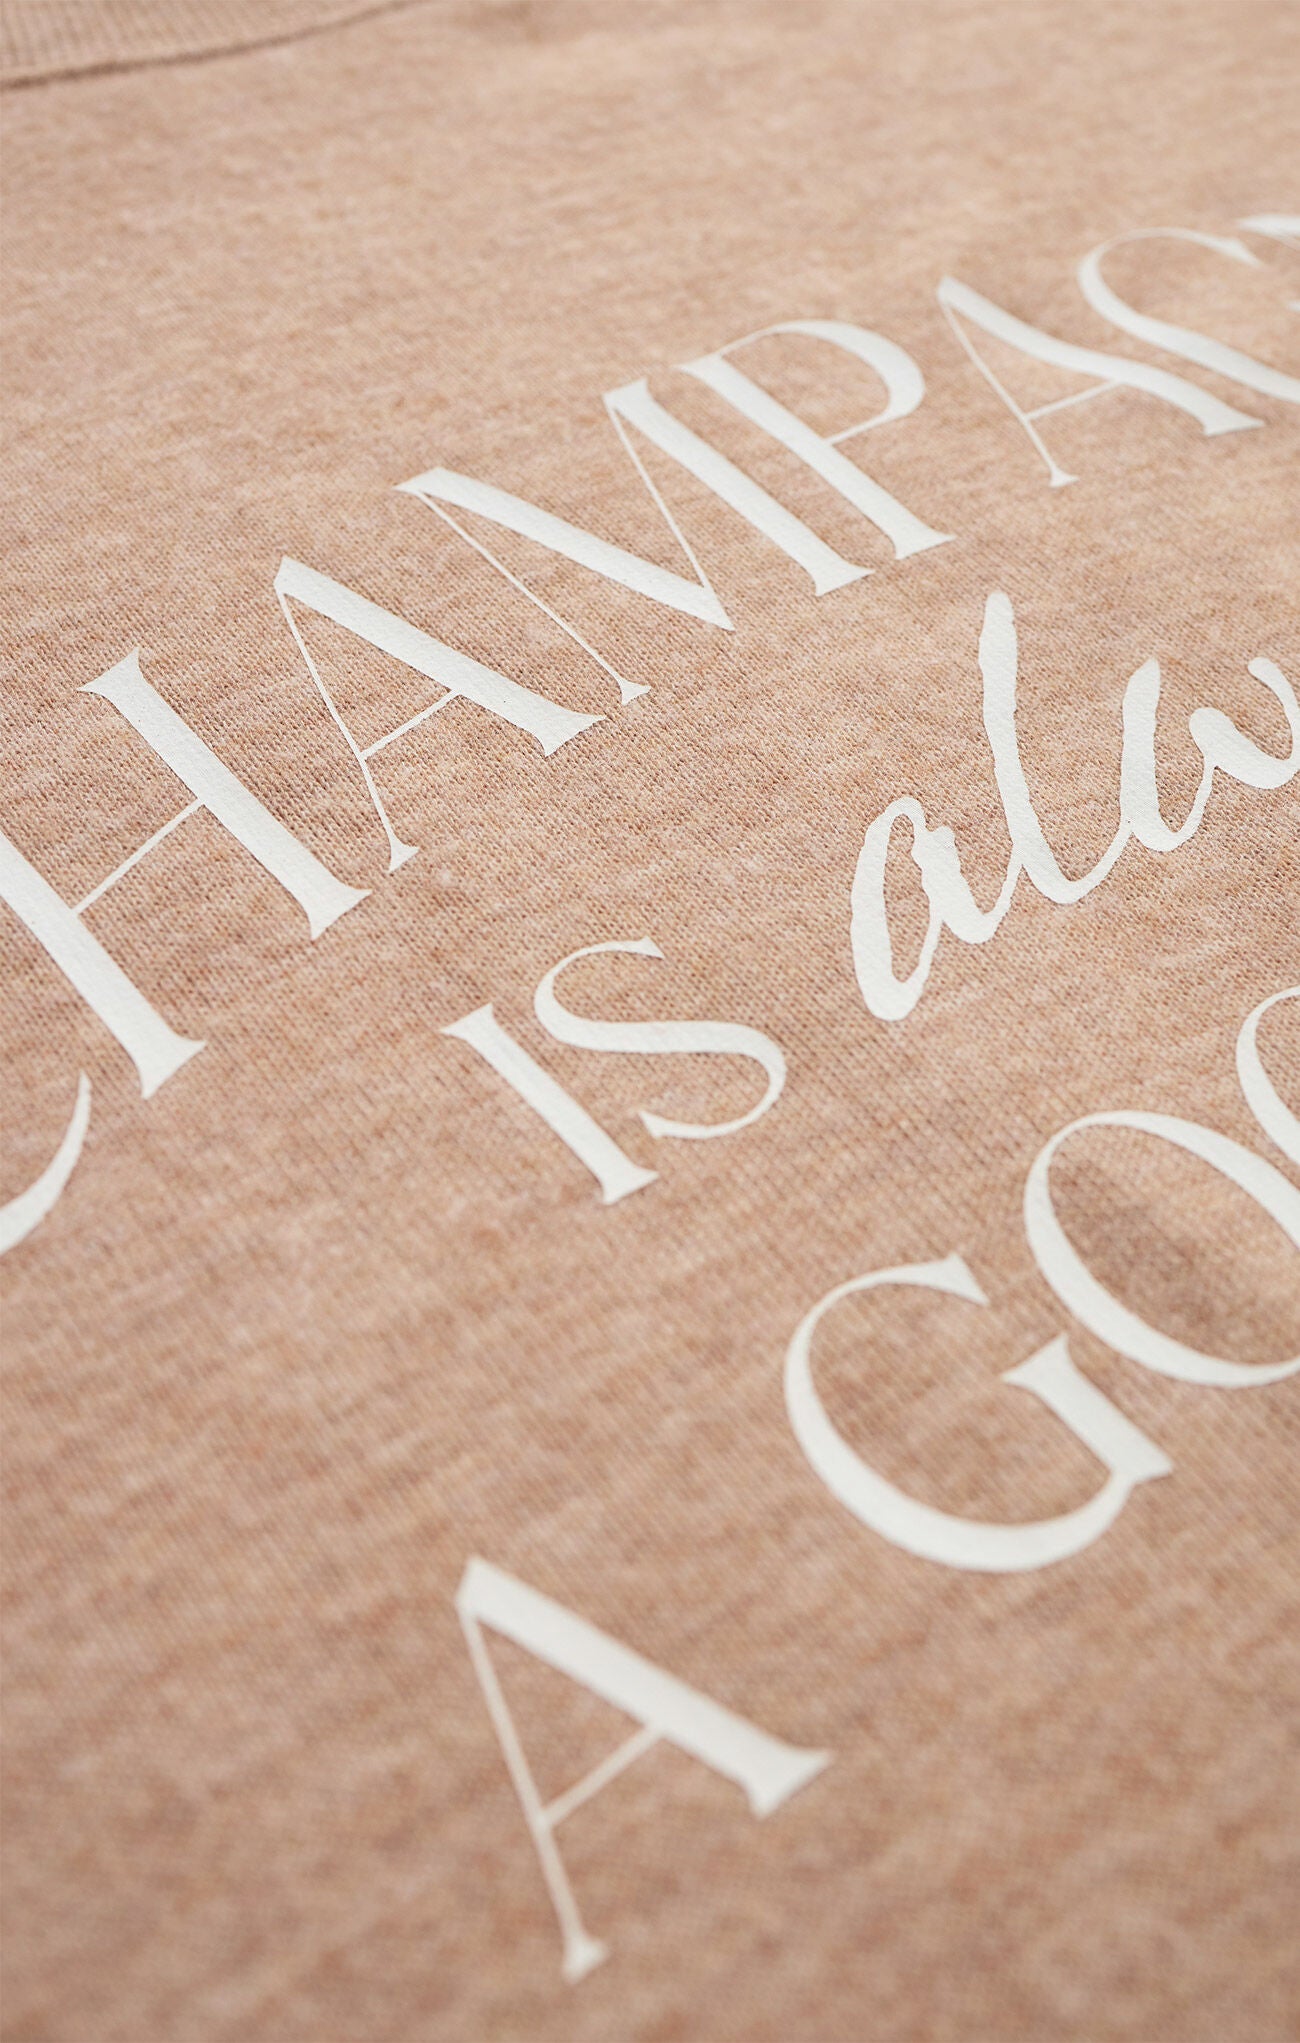 CHAMPAG
IS alw
A GOO